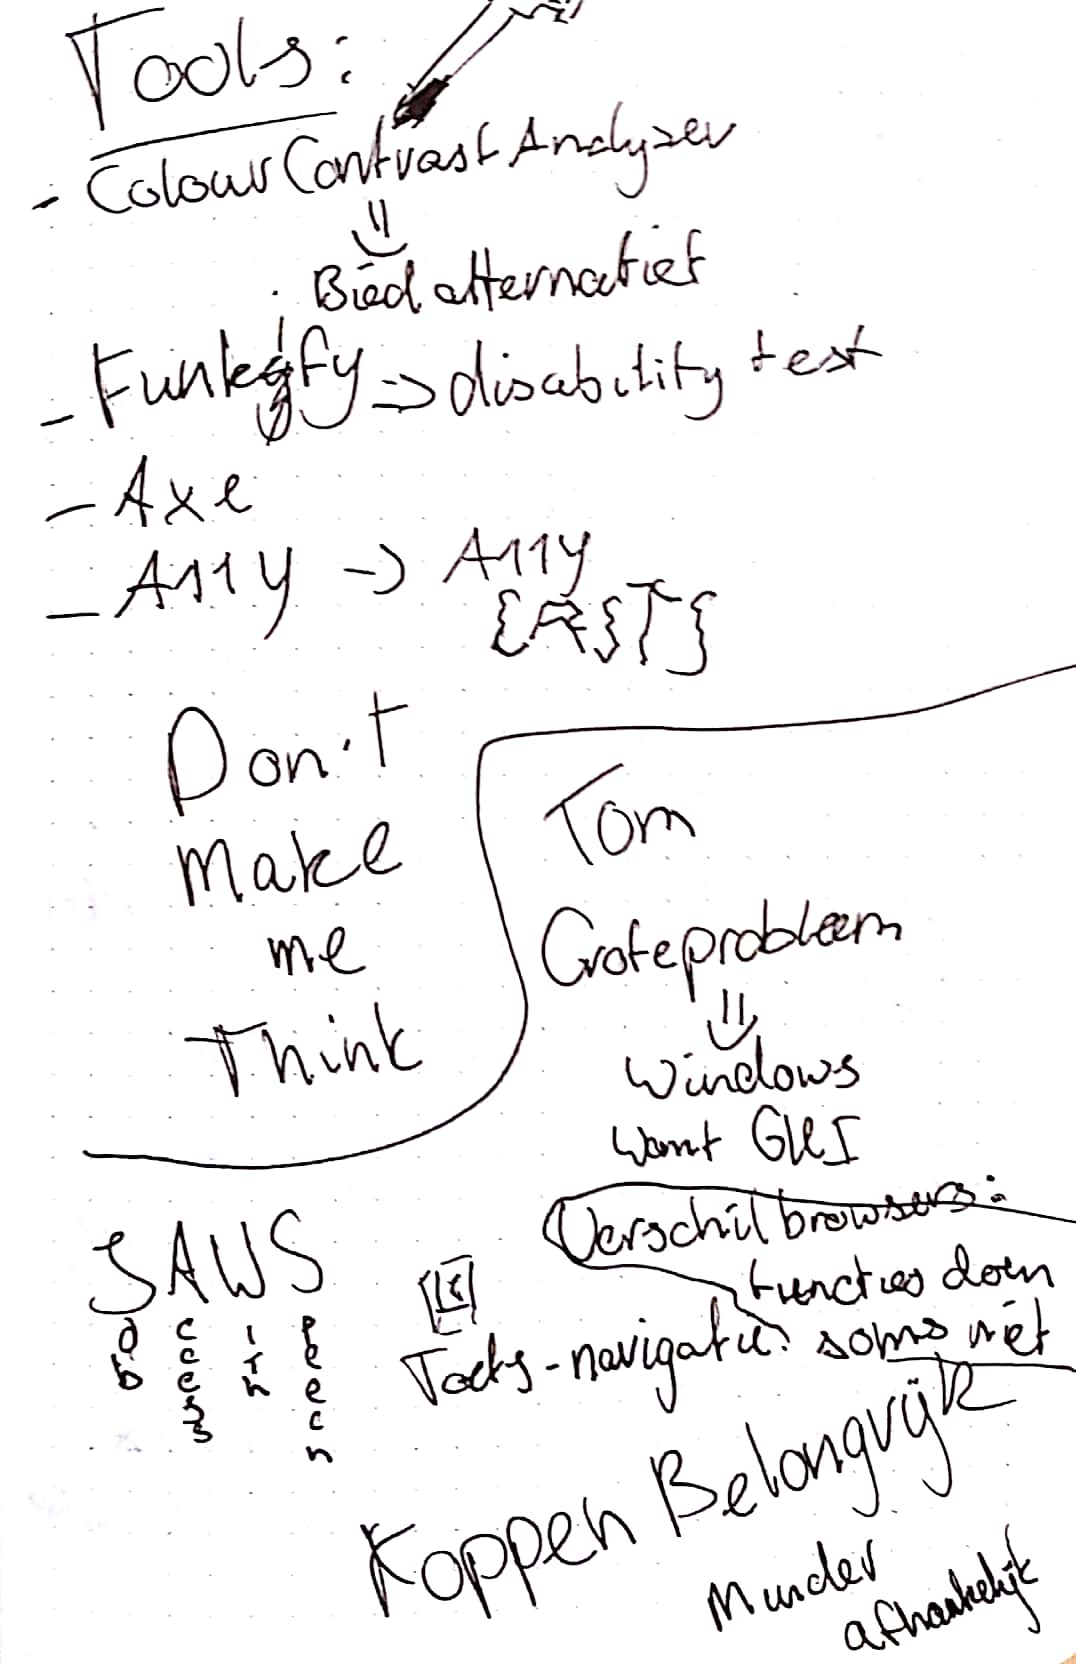 Tools:
- Colour Contrast Analyzer
Bied alternatief
- Funkify => disability test
- Axe
- A11Y -> A11Y
{CAST}
Don't
Make
me
Think
Tom
Grote probleem
Windows
Want GUI
Verschil browsers:
functies doen
soms niet
JAWS
ob
ccess
ith
peech
Toets-navigatie
Koppen Belangrijk
Minder
afhankelijk